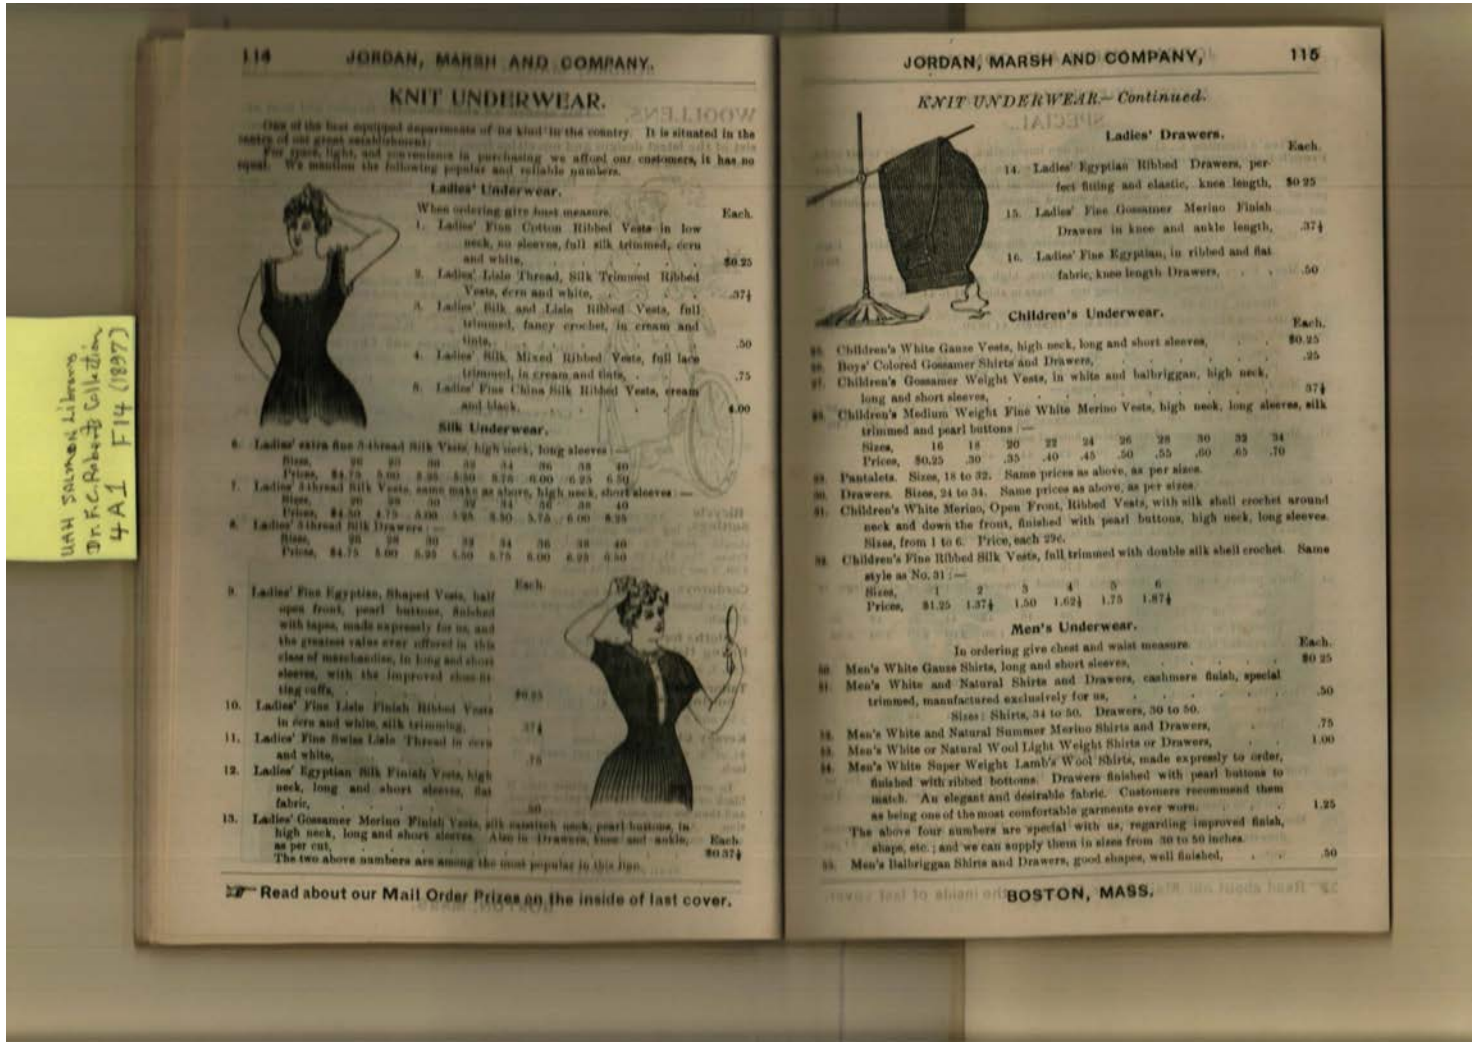 UAH SALMON Library
Dr. F.C. Roberts Collection
4A1 F14 (1897)
114 JORDAN, MARSH AND COMPANY.
KNIT UNDERWEAR.
One of the best equipped departments of its kind in the country. It is situated in the
centre of our great establishment.
For space, light, and convenience in purchasing we afford our customers, it has no
equal. We mention the following popular and reliable numbers.
Ladies' Underwear.
When ordering give bust measure. Each.
1. Ladies' Fine Cotton Ribbed Vests in low
neck, no sleeves, full silk trimmed, écru
and white, $0.25
2. Ladies' Lisle Thread, Silk Trimmed Ribbed
Vests, écru and white, .37½
3. Ladies' Silk and Lisle Ribbed Vests, full
trimmed, fancy crochet, in cream and
tints, .50
4. Ladies' Silk Mixed Ribbed Vests, full lace
trimmed, in cream and tints, .75
5. Ladies' Fine China Silk Ribbed Vests, cream
and black, 1.00
Silk Underwear.
6. Ladies' extra fine 3-thread Silk Vests, high neck, long sleeves:—
Sizes, 26 28 30 32 34 36 38 40
Prices, $4.75 5.00 5.25 5.50 5.75 6.00 6.25 6.50
7. Ladies' 3-thread Silk Vests, same make as above, high neck, short sleeves:—
Sizes, 26 28 30 32 34 36 38 40
Prices, $4.50 4.75 5.00 5.25 5.50 5.75 6.00 6.25
8. Ladies' 3-thread Silk Drawers:—
Sizes, 26 28 30 32 34 36 38 40
Prices, $4.75 5.00 5.25 5.50 5.75 6.00 6.25 6.50
Each.
9. Ladies' Fine Egyptian, Shaped Vests, half
open front, pearl buttons, finished
with tapes, made expressly for us, and
the greatest value ever offered in this
class of merchandise, in long and short
sleeves, with the improved close-fit-
ting cuffs, $0.25
10. Ladies' Fine Lisle Finish Ribbed Vests
in écru and white, silk trimming, .37½
11. Ladies' Fine Swiss Lisle Thread in écru
and white, .75
12. Ladies' Egyptian Silk Finish Vests, high
neck, long and short sleeves, flat
fabric, .50
13. Ladies' Gossamer Merino Finish Vests, silk neck, pearl buttons, in
high neck, long and short sleeves. Also in Drawers, knee and ankle, Each.
as per cut, $0.37½
The two above numbers are among the most popular in this line.
☞ Read about our Mail Order Prizes on the inside of last cover.
JORDAN, MARSH AND COMPANY, 115
KNIT UNDERWEAR.—Continued.
Ladies' Drawers.
Each.
14. Ladies' Egyptian Ribbed Drawers, per-
fect fitting and elastic, knee length, $0 25
15. Ladies' Fine Gossamer Merino Finish
Drawers in knee and ankle length, .37½
16. Ladies' Fine Egyptian, in ribbed and flat
fabric, knee length Drawers, .50
Children's Underwear.
Each.
25. Children's White Gauze Vests, high neck, long and short sleeves, $0.25
26. Boys' Colored Gossamer Shirts and Drawers, .25
27. Children's Gossamer Weight Vests, in white and balbriggan, high neck,
long and short sleeves, 37½
28. Children's Medium Weight Fine White Merino Vests, high neck, long sleeves, silk
trimmed and pearl buttons:—
Sizes, 16 18 20 22 24 26 28 30 32 34
Prices, $0.25 .30 .35 .40 .45 .50 .55 .60 .65 .70
29. Pantalets. Sizes, 18 to 32. Same prices as above, as per sizes.
30. Drawers. Sizes, 24 to 34. Same prices as above, as per sizes.
31. Children's White Merino, Open Front, Ribbed Vests, with silk shell crochet around
neck and down the front, finished with pearl buttons, high neck, long sleeves.
Sizes, from 1 to 6. Price, each 29c.
32. Children's Fine Ribbed Silk Vests, full trimmed with double silk shell crochet. Same
style as No. 31:—
Sizes, 1 2 3 4 5 6
Prices, $1.25 1.37½ 1.50 1.62½ 1.75 1.87½
Men's Underwear.
In ordering give chest and waist measure. Each.
50. Men's White Gauze Shirts, long and short sleeves, $0 25
51. Men's White and Natural Shirts and Drawers, cashmere finish, special
trimmed, manufactured exclusively for us, .50
Sizes: Shirts, 34 to 50. Drawers, 30 to 50.
52. Men's White and Natural Summer Merino Shirts and Drawers, .75
53. Men's White or Natural Wool Light Weight Shirts or Drawers, 1.00
54. Men's White Super Weight Lamb's Wool Shirts, made expressly to order,
finished with ribbed bottoms. Drawers finished with pearl buttons to
match. An elegant and desirable fabric. Customers recommend them
as being one of the most comfortable garments ever worn. 1.25
The above four numbers are special with us, regarding improved finish,
shape, etc.; and we can supply them in sizes from 30 to 50 inches.
55. Men's Balbriggan Shirts and Drawers, good shapes, well finished, .50
BOSTON, MASS.